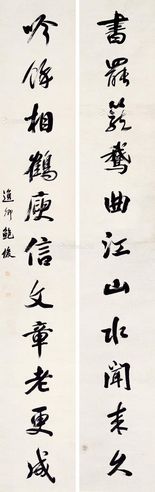 書罷籠鵞曲江山水聞來久
吟餘相鶴庾信文章老更成
逸卿鮑俊